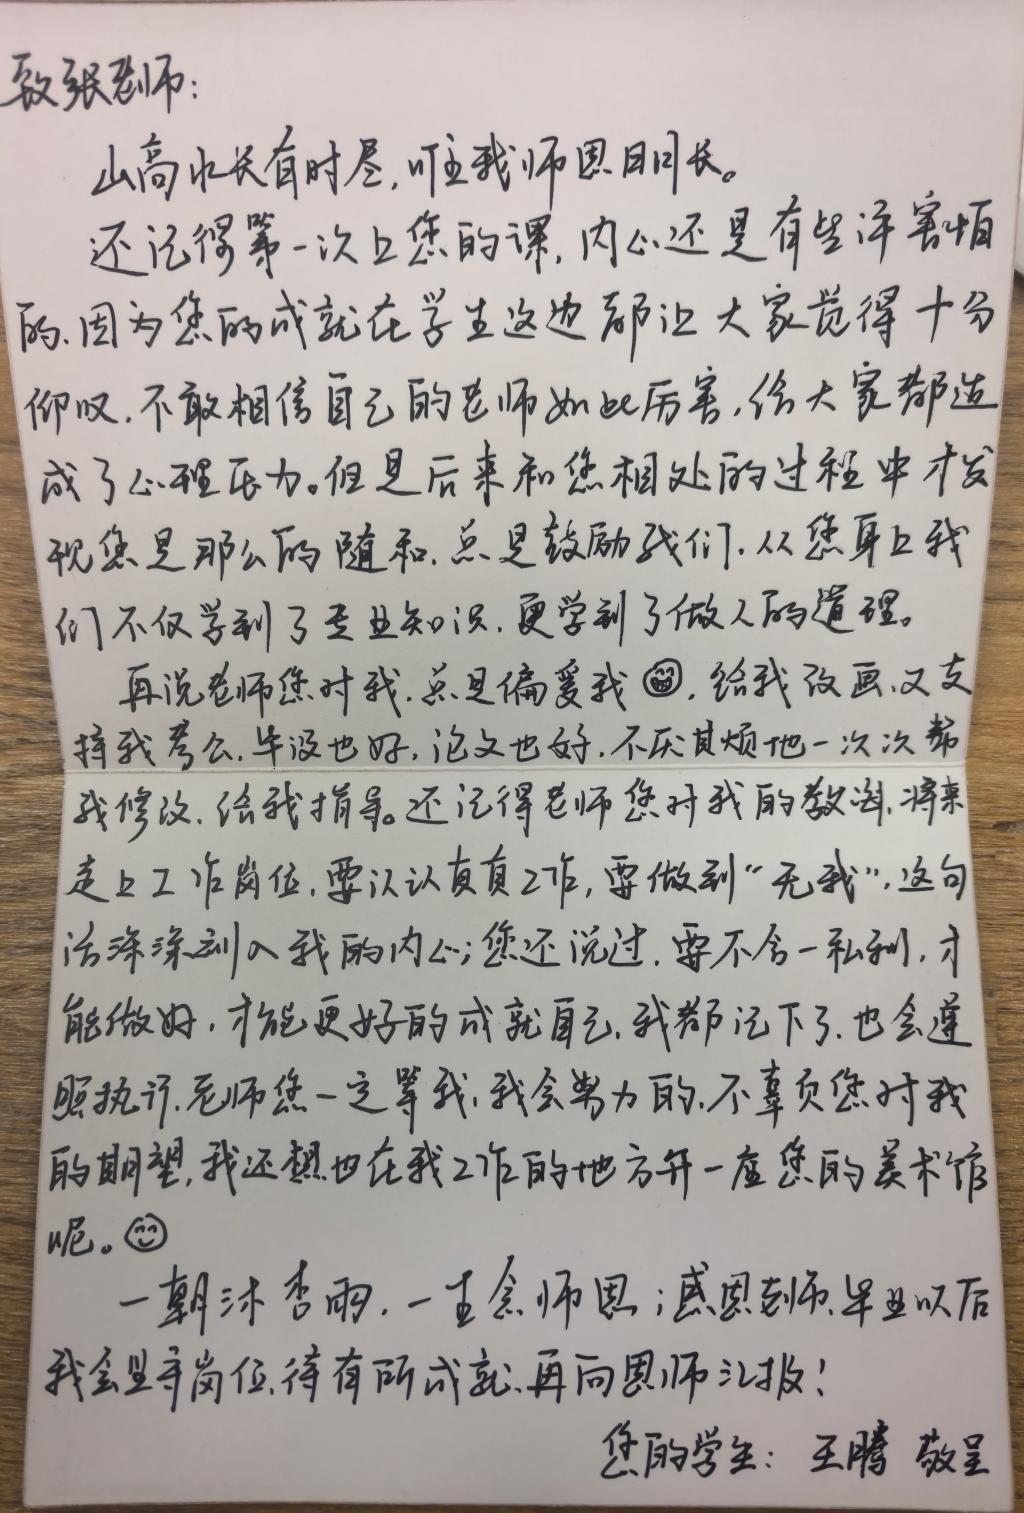 致张老师：
山高水长有时尽，唯我师恩日月长。
还记得第一次上您的课，内心还是有些许害怕
的、因为您的成就在学生这边都让大家觉得十分
仰叹，不敢相信自己的老师如此厉害，给大家都造
成了心理压力。但是后来和您相处的过程中才发
现您是那么的随和，总是鼓励我们，从您身上我
们不仅学到了专业知识，更学到了做人的道理。
再说老师您对我，总是偏爱我😁，给我改画、又支
持我考公，毕设也好，论文也好，不厌其烦地一次次帮
我修改、给我指导。还记得老师您对我的教诲，将来
走上工作岗位，要认认真真工作，要做到“无我”，这句
话深深刻入我的内心；您还说过，要不含一私利，才
能做好，才能更好的成就自己，我都记下了，也会遵
照执行，老师您一定等我，我会努力的，不辜负您对我
的期望，我还想也在我工作的地方开一座您的美术馆
呢。😊
一朝沐杏雨，一生念师恩；感恩老师，毕业以后
我会坚守岗位，待有所成就、再向恩师汇报！
您的学生：王腾 敬呈